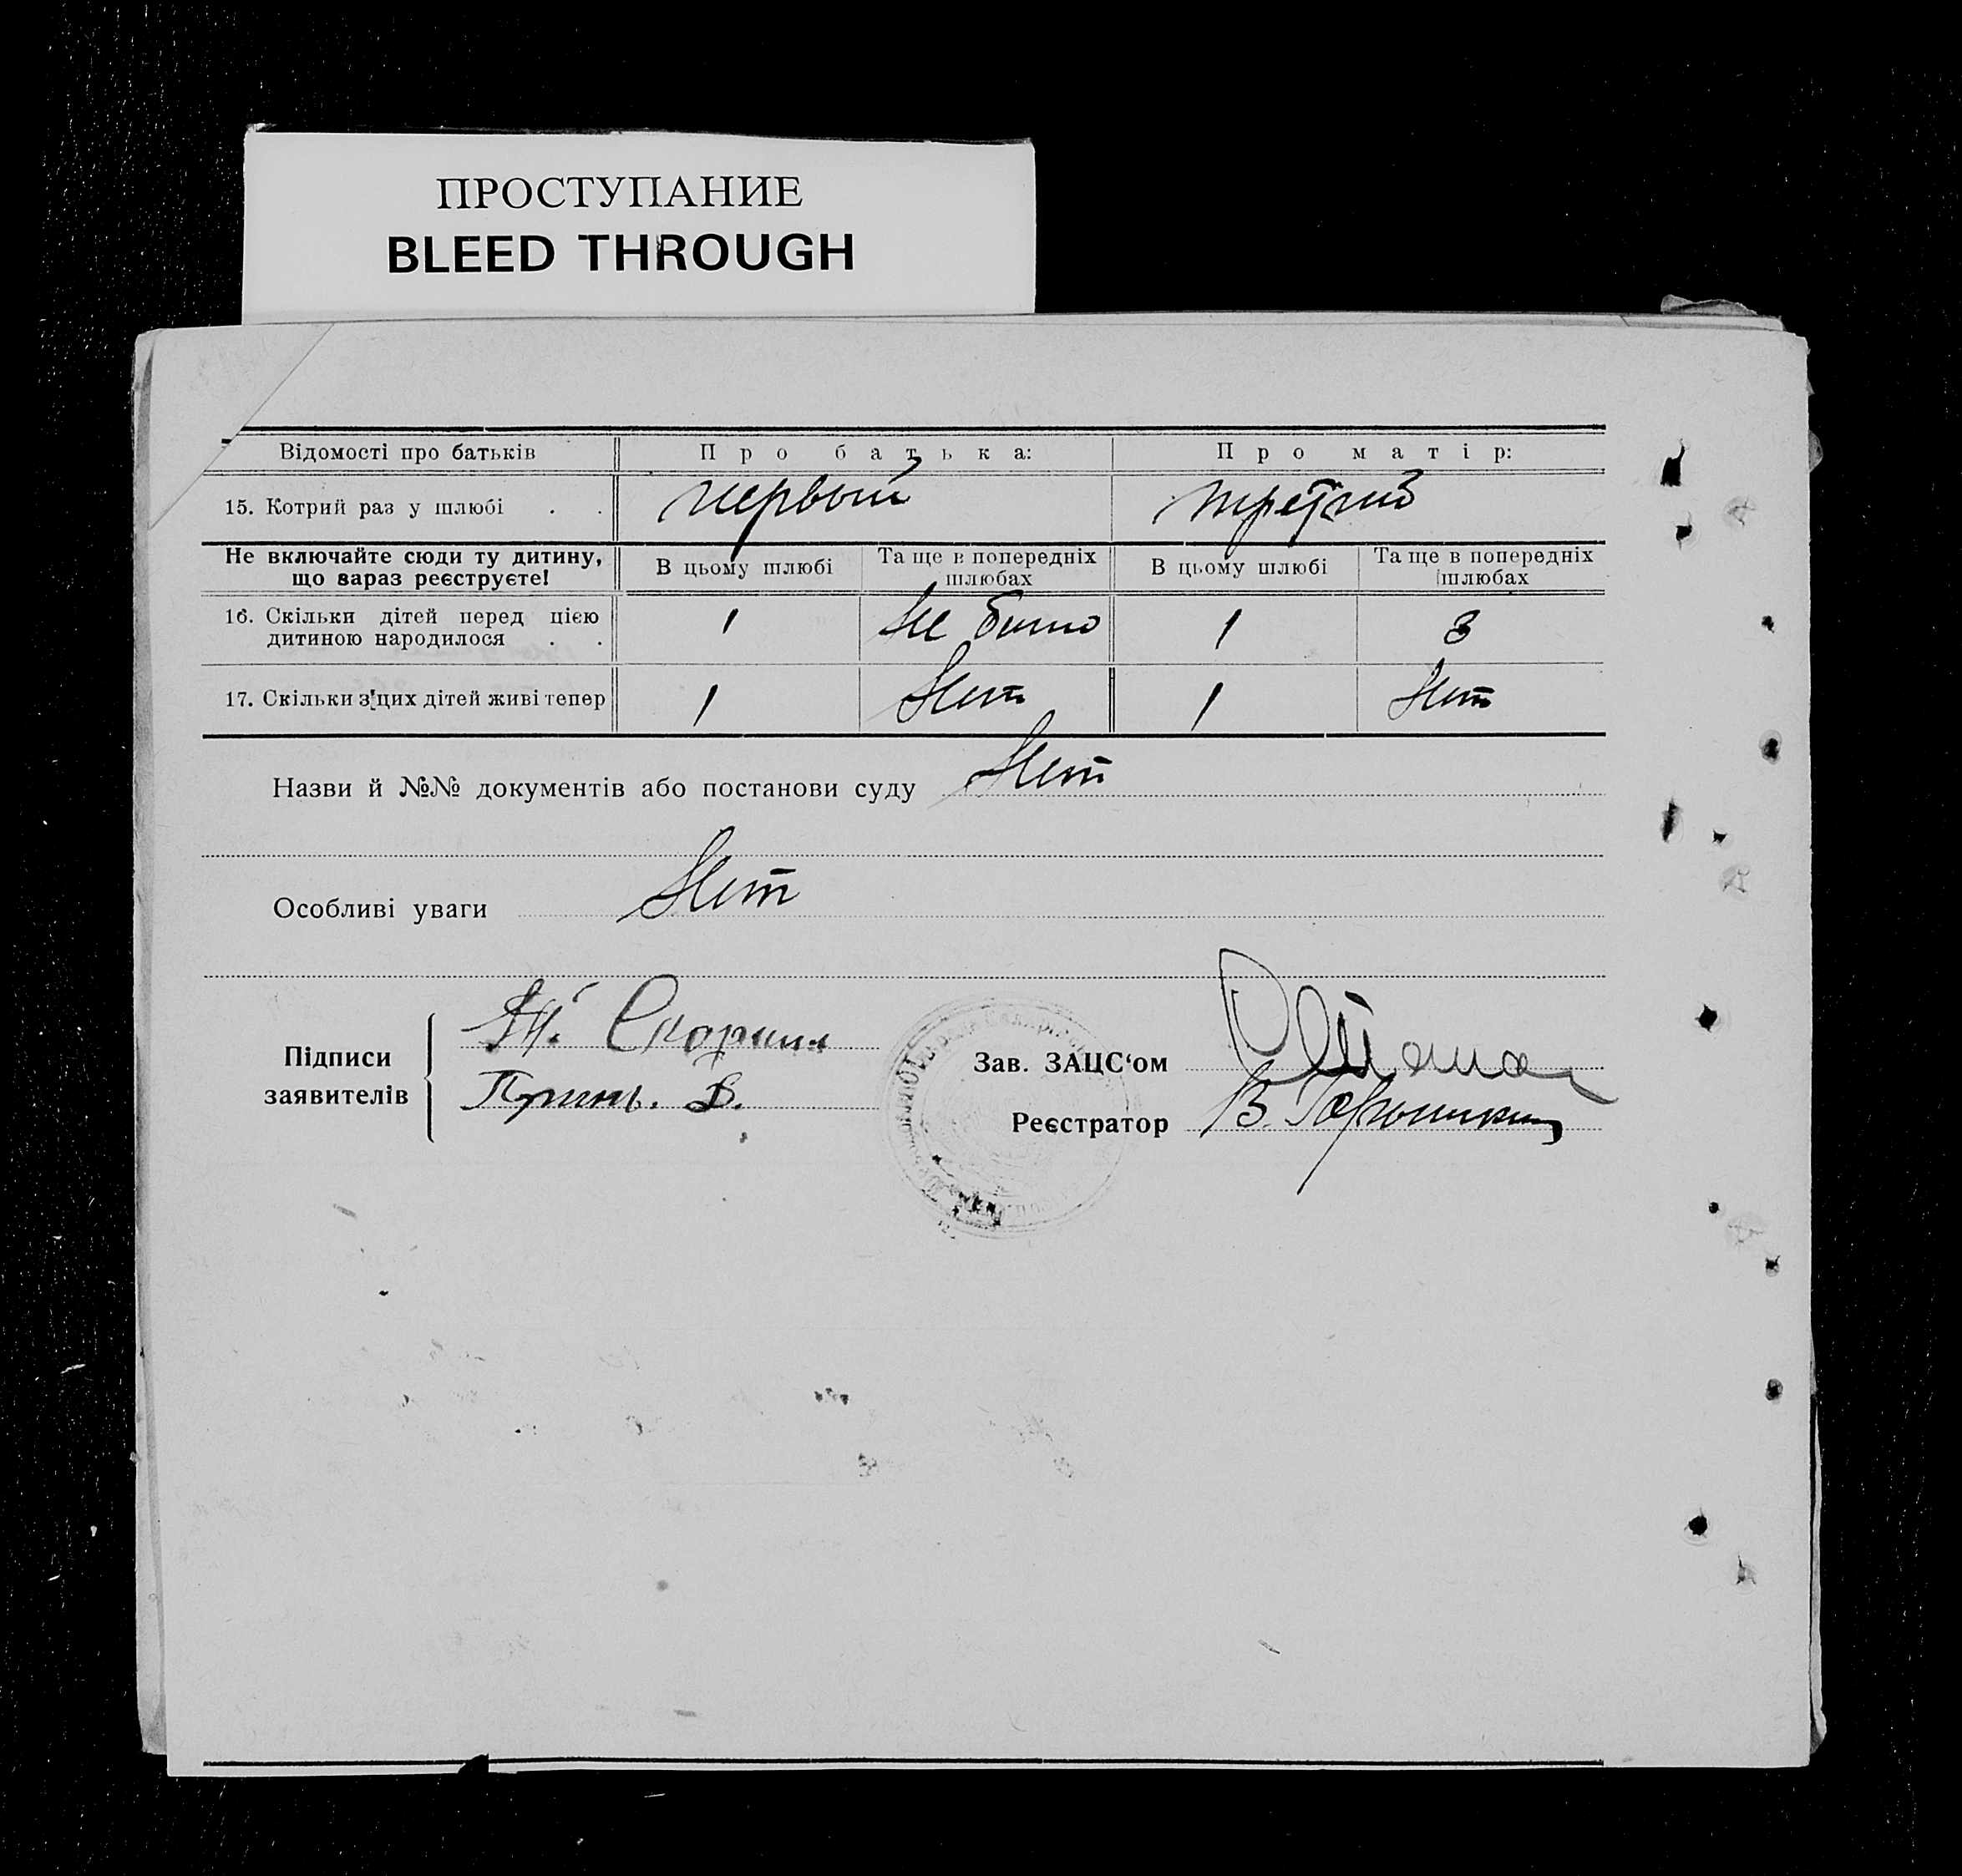 ПРОСТУПАНИЕ
BLEED THROUGH
Відомості про батьків Про батька: Про матір:
15. Котрий раз у шлюбі . . первый третий
Не включайте сюди ту дитину, що зараз реєструєте! В цьому шлюбі Та ще в попередніх шлюбах В цьому шлюбі Та ще в попередніх шлюбах
16. Скільки дітей перед цією дитиною народилося . . 1 не было 1 3
17. Скільки з цих дітей живі тепер 1 Нет 1 Нет
Назви й №№ документів або постанови суду Нет
Особливі уваги Нет
Підписи заявителів
Зав. ЗАЦС‘ом
Реєстратор В.